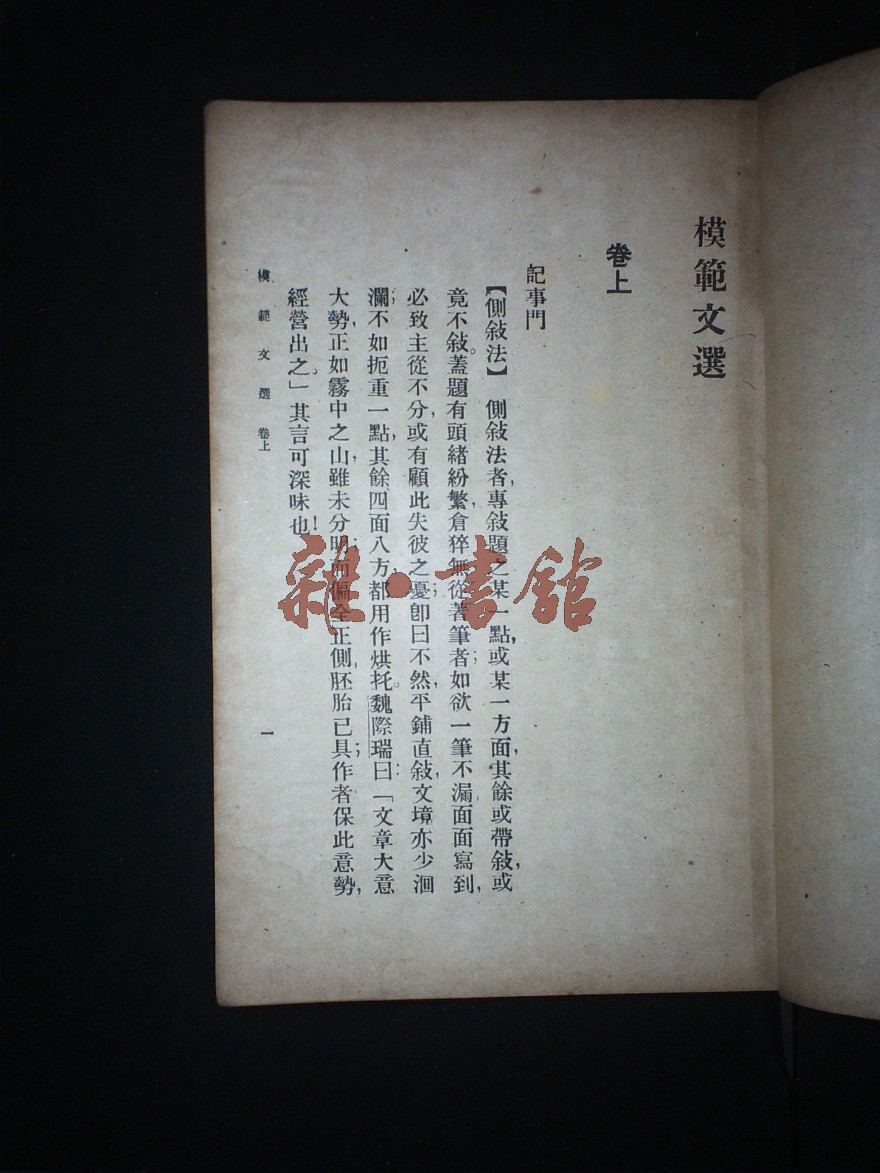 模範文選
卷上
記事門
【側敍法】　側敍法者，專敍題之某一點，或某一方面，其餘或帶敍，或
竟不敍。蓋題有頭緒紛繁，倉猝無從著筆者；如欲一筆不漏，面面寫到，
必致主從不分，或有顧此失彼之憂；卽曰不然，平鋪直敍，文境亦少洄
瀾；不如扼重一點，其餘四面八方，都用作烘托。魏際瑞曰：「文章大意
大勢，正如霧中之山，雖未分明；而偏全正側，胚胎已具；作者保此意勢，
經營出之。」其言可深味也！
模範文選　卷上
一
雜·書館